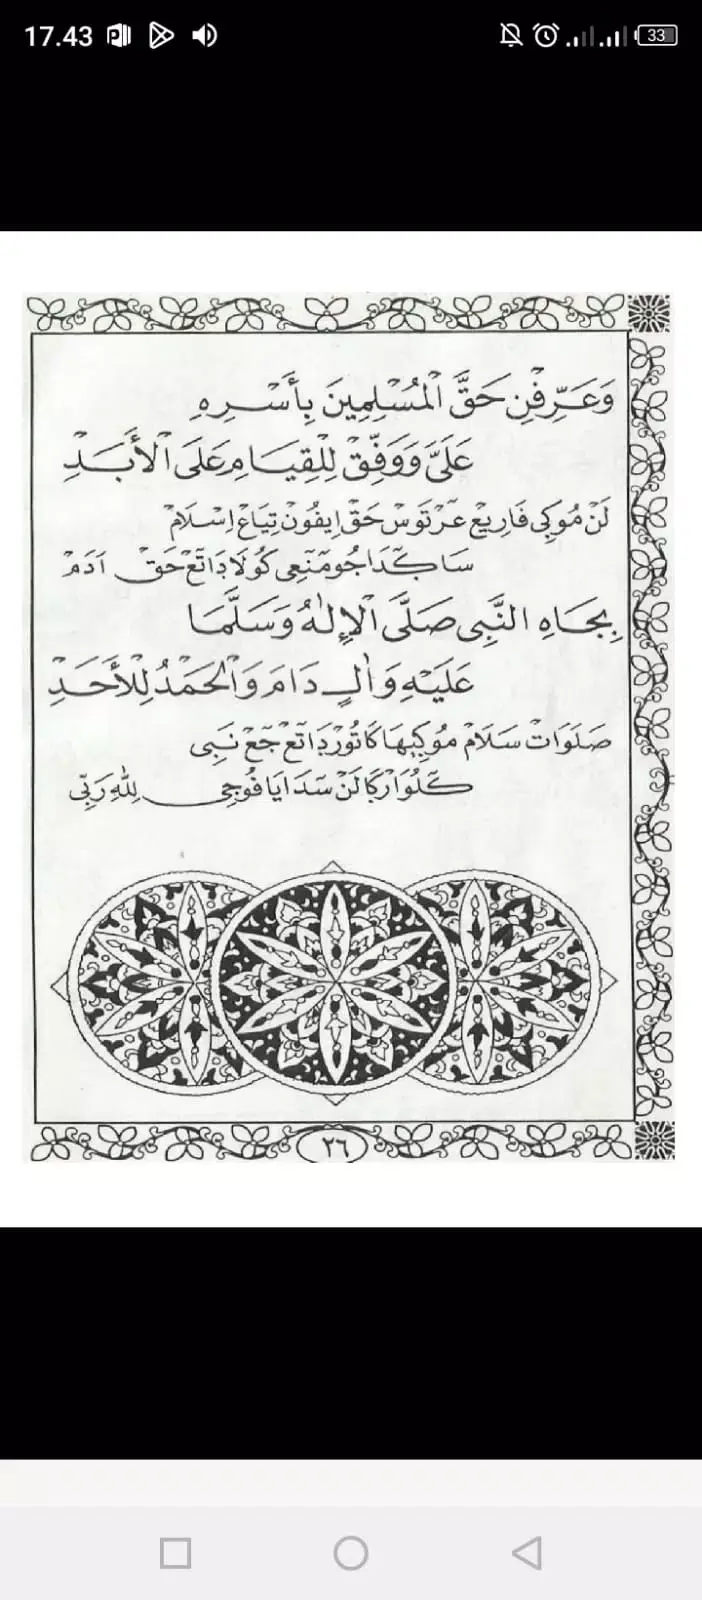 17.43
33
وَعَرِّفْنِ حَقَّ الْمُسْلِمِينَ بِأَسْرِهِ
عَلَيَّ وَوَفِّقْ لِلْقِيَامِ عَلَى الْأَبَدِ
لَنْ مُوكِي فَارِيعْ عَرْتَوسْ حَقْ اِيفُونْ تِيَاعْ اِسْلَامْ
بِجَاهِ النَّبِى صَلَّى الْإِلٰهُ وَسَلَّمَا
عَلَيْهِ وَاٰلٍ دَامَ وَالْحَمْدُ لِلْأَحَدِ
صَلَوَاتْ سَلَامْ مُوكِيهَا كَاتُورْ دَاتَعْ جَعْ نَبِى
كَلُوَارْكَا لَنْ سَدَايَا فُوجِى لِلّٰهِ رَبِّى
٢٦